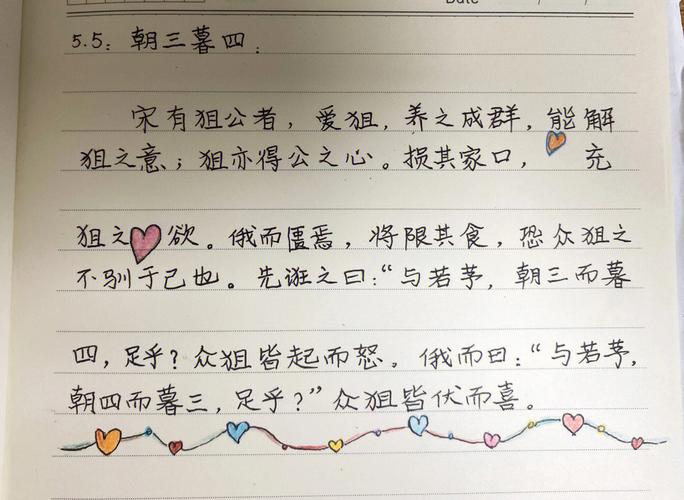 Date / /
5.5：朝三暮四：
宋有狙公者，爱狙，养之成群，能解
狙之意；狙亦得公之心。损其家口，充
狙之欲。俄而匮焉，将限其食，恐众狙之
不驯于己也。先诳之曰：“与若茅，朝三而暮
四，足乎？众狙皆起而怒。俄而曰：“与若茅，
朝四而暮三，足乎？”众狙皆伏而喜。